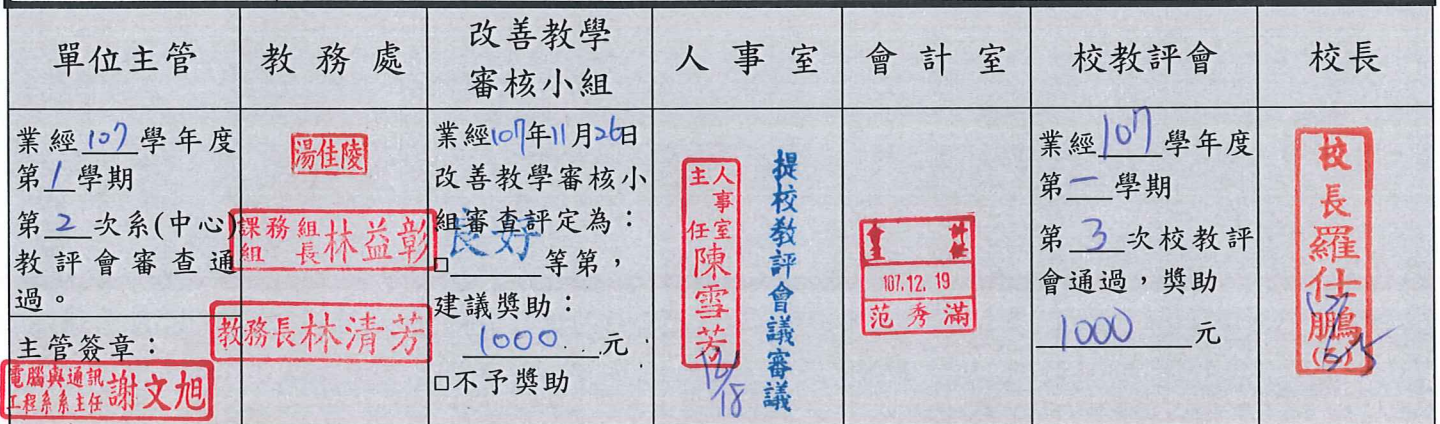 單位主管
教務處
改善教學
審核小組
人事室
會計室
校教評會
校長
業經107學年度
第1學期
第2次系(中心)
教評會審查通
過。
主管簽章：
電腦與通訊
工程系系主任 謝文旭
湯佳陵
課務組
組長 林益彰
教務長林清芳
業經107年11月26日
改善教學審核小
組審查評定為：
□良好等第，
建議獎助：
1000元
□不予獎助
人事室
主任 陳雪芳
12/18
提校教評會議審議
會計
主任
107.12.19
范秀滿
業經107學年度
第一學期
第3次校教評
會通過，獎助
1000元
校長羅仕鵬
(5)